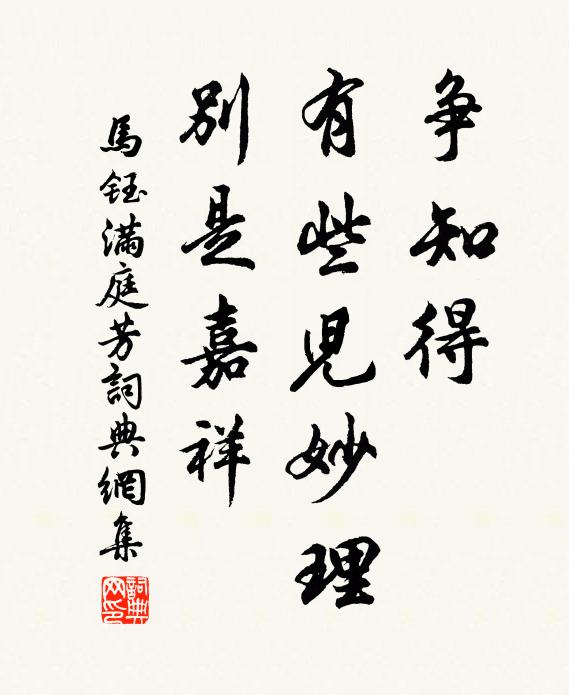 争知得
有些兒妙理
別是嘉祥
馬鈺滿庭芳詞典網集
詞典
网印